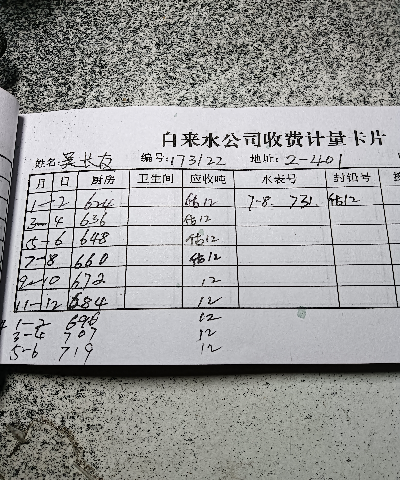 自来水公司收费计量卡片
姓名: 吴长友 编号: 173122 地址: 2-401
月 日 厨房 卫生间 应收吨 水表号 封铅号
1-2 624 估12 7-8. 731 估12
3-4 636 估12
5-6 648 估12
7-8 660 估12
9-10 672 12
11-12 684 12
1-2 696 12
3-4 707 12
5-6 719 12